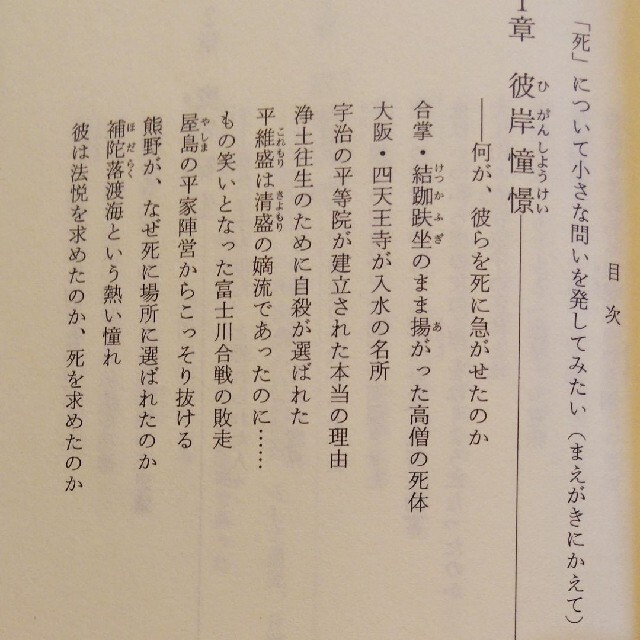 目次
「死」について小さな問いを発してみたい（まえがきにかえて）
1章 彼岸憧憬
――何が、彼らを死に急がせたのか
合掌・結跏趺坐のまま揚がった高僧の死体
大阪・四天王寺が入水の名所
宇治の平等院が建立された本当の理由
浄土往生のために自殺が選ばれた
平維盛は清盛の嫡流であったのに……
もの笑いとなった富士川合戦の敗走
屋島の平家陣営からこっそり抜ける
熊野が、なぜ死に場所に選ばれたのか
補陀落渡海という熱い憧れ
彼は法悦を求めたのか、死を求めたのか